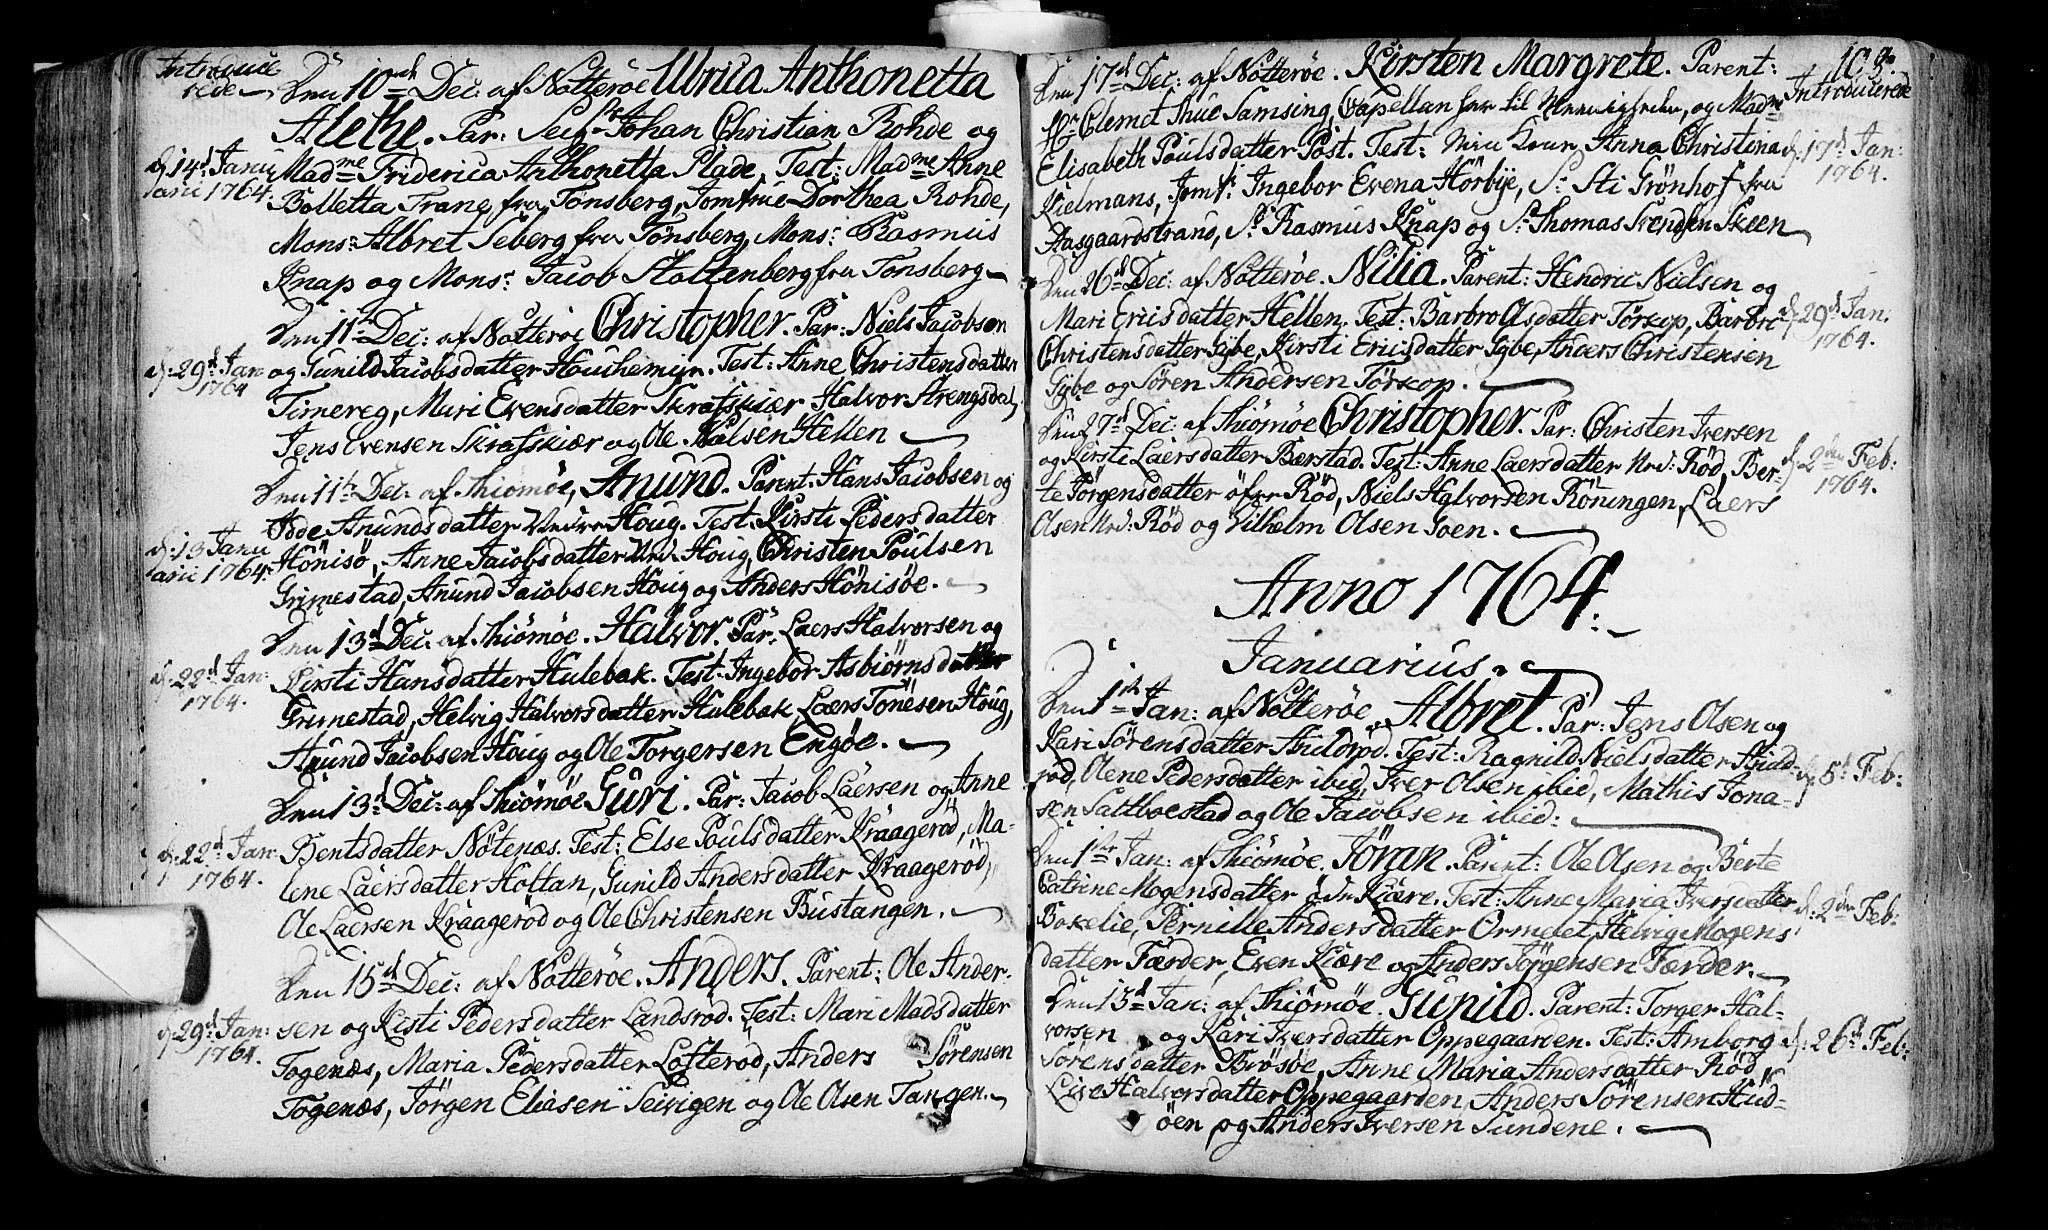 Introduce
rede
Den 10de Dec: af Nötteröe Ulrica Anthonetta
Alethe. Par: Seigr Johan Christian Rohde og
d. 14de Janu
arii 1764.
Madme Friderica Anthonetta Plade, Test: Madme Anne
Bolletta Trane fra Tönsberg, Jomfrue Dorthea Rohde,
Mons: Albret Seberg fra Tönsberg, Mons: Rasmus
Knap og Mons: Jacob Stoltenberg fra Tonsberg
Den 11te Dec: af Nötteröe Christopher. Par: Niels Jacobsen
d. 29de Jan
1764
og Gunild Jacobsdatter Houchemyr. Test: Anne Christensdatter
Timereg, Mari Evensdatter Skrafskiær Halvor Strengsdal,
Jens Evensen Skrafskiær og Ole Halsen Hellen
Den 11te Dec: af Thiömöe, Anund. Parent: Hans Jacobsen og
Odde Anundsdatter Nedre Houg. Test: Kirsti Pedersdatter
d. 13 Janu
arii 1764.
Hönisö, Anne Jacobsdatter Ned: Houg, Christen Poulsen
Grimestad, Anund Jacobsen Houg og Anders Hönisöe.
Den 13de Dec: af Thiömöe. Halvor. Par: Laers Halvorsen og
d. 22de Jan:
1764.
Kirsti Hansdatter Hulebak. Test: Ingebor Asbiörnsdatter
Grimestad, Helvig Halvorsdatter Hulebak, Laers Tönesen Houg,
Anund Jacobsen Houg og Ole Torgersen Engöe.
Den 13de Dec: af Thiömöe Guri. Par: Jacob Laersen og Anne
d. 22de Jan:
1764.
Bentsdatter Nötenæs. Test: Else Poulsdatter Kraageröd, Ma-
lene Laersdatter Holtan, Gunild Andersdatter Kraageröd,
Ole Laersen Kraageröd og Ole Christensen Bustangen.
Den 15de Dec: af Nötteröe. Anders. Parent: Ole Ander-
d. 29de Jan:
1764.
sen og Kisti Pedersdatter Landsröd. Test: Mari Madsdatter
Togenæs, Maria Pedersdatter Lofteröd, Anders Sörensen
Togenæs, Jörgen Eliasen Teivigen og Ole Olsen Tangen.
109.
Introducerede
Den 17de Dec: af Nötteröe. Kirsten Margrete. Parent:
Hr Clemet Thue Samsing, Capellan her til Menigheden, og Madme
d. 17de Jan:
1764.
Elisabeth Poulsdatter Post. Test: Min Kone Anna Christina
Kielmans, Jomf: Ingebor Evena Hörbye, Sr Sti Grönhof fra
Aasgaardstrand, Sr Rasmus Knap og Sr Thomas Svendsen Skeen
Den 26de Dec: af Nötteröe. Nilia. Parent: Hendric Nielsen og
d. 29de Jan:
1764.
Mari Ericsdatter Hellen. Test: Barbro Olsdatter Törkop, Barbro
Christensdatter Gybe, Kirsti Ericsdatter Gybe, Anders Christensen
Gybe og Sören Andersen Törkop.
Den 27de Dec: af Thiömöe Christopher. Par: Christen Iversen
d. 2den Feb:
1764.
og Kirsti Laersdatter Bærstad. Test: Anne Laersdatter Ned: Röd, Ber-
te Jörgensdatter öfre Röd, Niels Halvorsen Röningen, Laers
Olsen Ned: Röd og Vilhelm Olsen Goen.
Anno 1764.
Januarius.
Den 1te Jan: af Nötteröe. Albret. Par: Jens Olsen og
d. 5te Feb:
Kari Sörensdatter Huldröd. Test: Ragnild Nielsdatter Huld-
röd, Olene Pedersdatter ibid, Iver Olsen ibid, Mathis Jona-
sen Saltboestad og Ole Jacobsen ibid:
Den 1te Jan: af Thiömöe. Jöran. Parent: Ole Olsen og Berte
d. 2den Feb:
Catrine Mogensdatter Kiære. Test: Anne Maria Iversdatter
Bakelie, Pernille Andersdatter Ormelet, Helvig Mogens
datter Færder, Even Kiære og Anders Jörgensen Færder.
Den 15de Jan: af Thiömöe. Gunild. Parent: Torger Hal-
d. 26de Feb:
vorsen og Kari Iversdatter Oppegaarden. Test: Amborg
Sörensdatter Brösöe, Anne Maria Andersdatter Röd,
Live Halvorsdatter Oppegaarden, Anders Sörensen Hud-
öen og Anders Iversen Sundene.